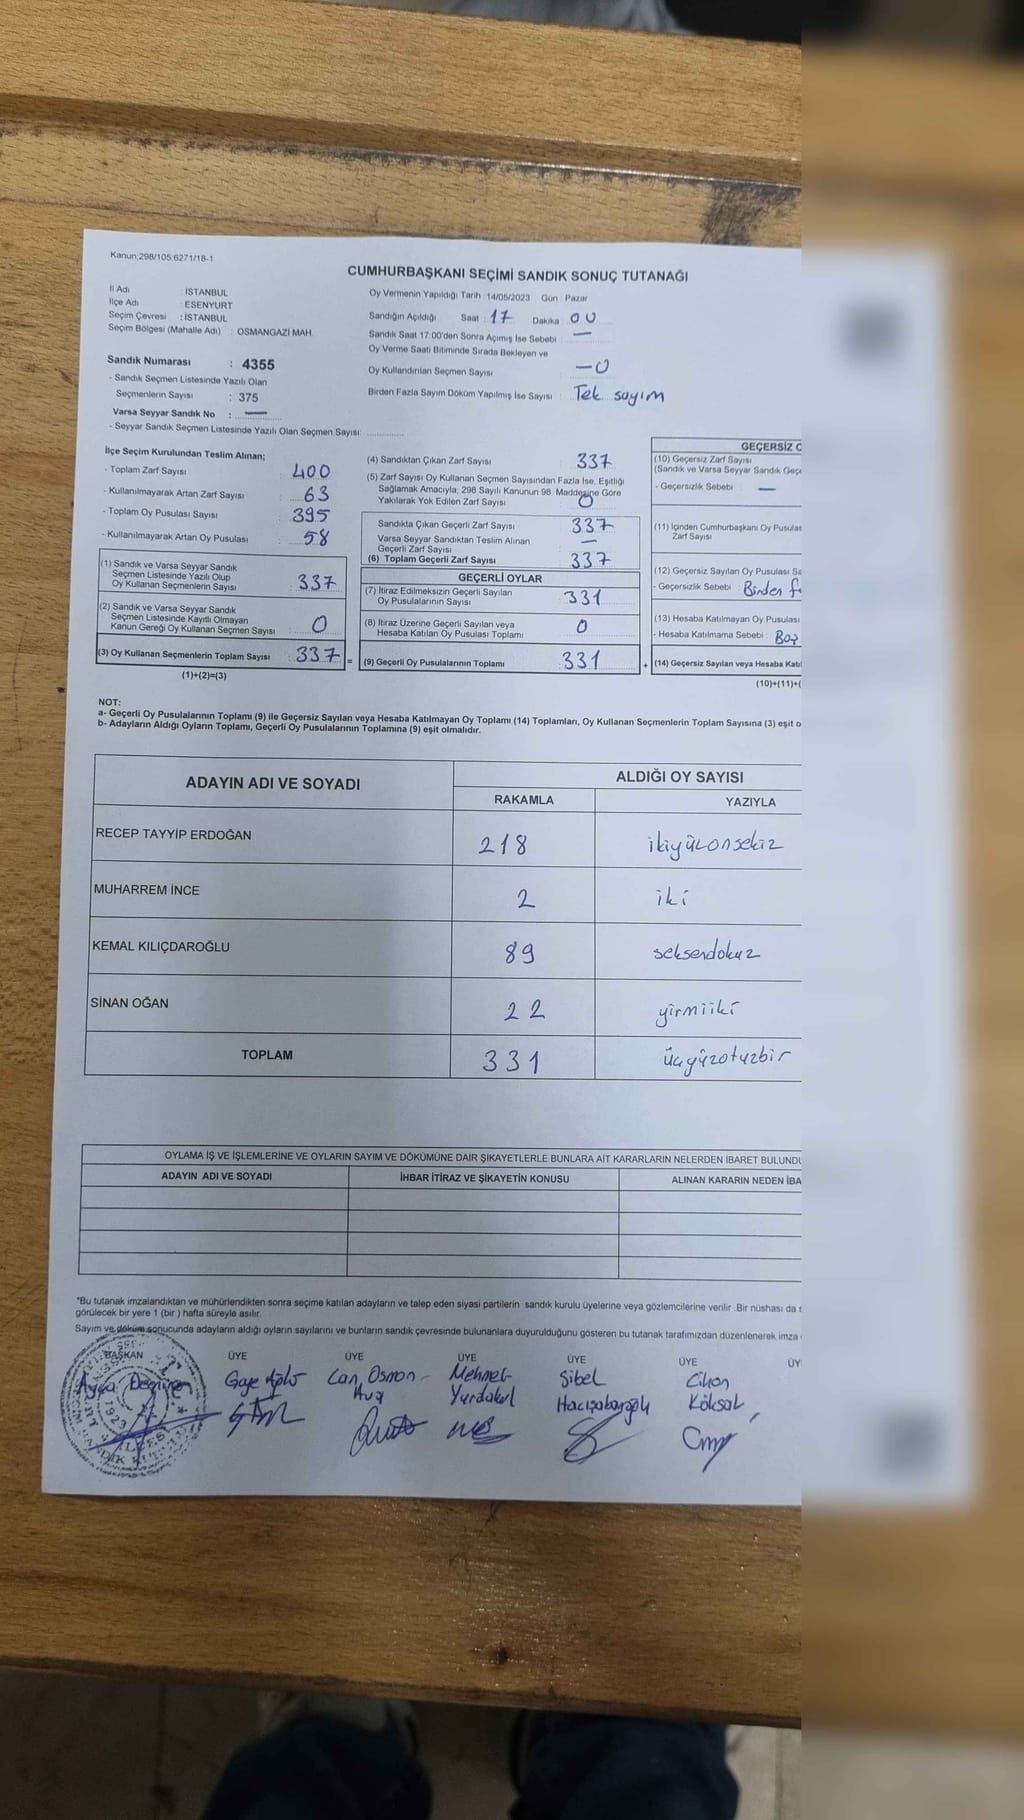 Kanun,298/105;6271/18-1
CUMHURBAŞKANI SEÇİMİ SANDIK SONUÇ TUTANAĞI
İl Adı : İSTANBUL
İlçe Adı : ESENYURT
Seçim Çevresi : İSTANBUL
Seçim Bölgesi (Mahalle Adı) : OSMANGAZİ MAH.
Sandık Numarası : 4355
- Sandık Seçmen Listesinde Yazılı Olan
Seçmenlerin Sayısı : 375
Varsa Seyyar Sandık No : —
- Seyyar Sandık Seçmen Listesinde Yazılı Olan Seçmen Sayısı: ..............
Oy Vermenin Yapıldığı Tarih : 14/05/2023 Gün : Pazar
Sandığın Açıldığı Saat 17 Dakika 00
Sandık Saat 17:00'den Sonra Açımış İse Sebebi : —
Oy Verme Saati Bitiminde Sırada Bekleyen ve
Oy Kullandırılan Seçmen Sayısı —0
Birden Fazla Sayım Döküm Yapılmış İse Sayısı : Tek sayım
İlçe Seçim Kurulundan Teslim Alınan;
- Toplam Zarf Sayısı : 400
- Kullanılmayarak Artan Zarf Sayısı : 63
- Toplam Oy Pusulası Sayısı : 395
- Kullanılmayarak Artan Oy Pusulası : 58
(1) Sandık ve Varsa Seyyar Sandık
Seçmen Listesinde Yazılı Olup
Oy Kullanan Seçmenlerin Sayısı : 337
(2) Sandık ve Varsa Seyyar Sandık
Seçmen Listesinde Kayıtlı Olmayan
Kanun Gereği Oy Kullanan Seçmen Sayısı : 0
(3) Oy Kullanan Seçmenlerin Toplam Sayısı : 337 =
(1)+(2)=(3)
(4) Sandıktan Çıkan Zarf Sayısı 337
(5) Zarf Sayısı Oy Kullanan Seçmen Sayısından Fazla İse, Eşitliği
Sağlamak Amacıyla; 298 Sayılı Kanunun 98. Maddesine Göre
Yakılarak Yok Edilen Zarf Sayısı : 0
Sandıkta Çıkan Geçerli Zarf Sayısı : 337
Varsa Seyyar Sandıktan Teslim Alınan
Geçerli Zarf Sayısı : —
(6) Toplam Geçerli Zarf Sayısı : 337
GEÇERLİ OYLAR
(7) İtiraz Edilmeksizin Geçerli Sayılan
Oy Pusulalarının Sayısı : 331
(8) İtiraz Üzerine Geçerli Sayılan veya
Hesaba Katılan Oy Pusulası Toplamı : 0
(9) Geçerli Oy Pusulalarının Toplamı : 331 +
GEÇERSİZ
(10) Geçersiz Zarf Sayısı
(Sandık ve Varsa Seyyar Sandık
- Geçersizlik Sebebi : —
(11) İçinden Cumhurbaşkanı Oy
Zarf Sayısı
(12) Geçersiz Sayılan Oy Pusulası
- Geçersizlik Sebebi : Birden
(13) Hesaba Katılmayan Oy Pusulası
- Hesaba Katılmama Sebebi : Boş
(14) Geçersiz Sayılan veya Hesaba
(10)+(11)+(
NOT:
a- Geçerli Oy Pusulalarının Toplamı (9) ile Geçersiz Sayılan veya Hesaba Katılmayan Oy Toplamı (14) Toplamları, Oy Kullanan Seçmenlerin Toplam Sayısına (3) eşit
b- Adayların Aldığı Oyların Toplamı, Geçerli Oy Pusulalarının Toplamına (9) eşit olmalıdır.
ADAYIN ADI VE SOYADI ALDIĞI OY SAYISI
RAKAMLA YAZIYLA
RECEP TAYYİP ERDOĞAN 218 ikiyüzonsekiz
MUHARREM İNCE 2 iki
KEMAL KILIÇDAROĞLU 89 seksendokuz
SİNAN OĞAN 22 yirmiiki
TOPLAM 331 üçyüzotuzbir
OYLAMA İŞ VE İŞLEMLERİNE VE OYLARIN SAYIM VE DÖKÜMÜNE DAİR ŞİKAYETLERLE BUNLARA AİT KARARLARIN NELERDEN İBARET
ADAYIN ADI VE SOYADI İHBAR İTİRAZ VE ŞİKAYETİN KONUSU ALINAN KARARIN NEDEN
*Bu tutanak imzalandıktan ve mühürlendikten sonra seçime katılan adayların ve talep eden siyasi partilerin sandık kurulu üyelerine veya gözlemcilerine verilir. Bir nüshası da
görülecek bir yere 1 (bir) hafta süreyle asılır.
Sayım ve döküm sonucunda adayların aldığı oyların sayılarını ve bunların sandık çevresinde bulunanlara duyurulduğunu gösteren bu tutanak tarafımızdan düzenlenerek imza
BAŞKAN ÜYE ÜYE ÜYE ÜYE ÜYE
Gaye Can Osman Mehmet Sibel Cihan
Yurdakul Köksal
1923